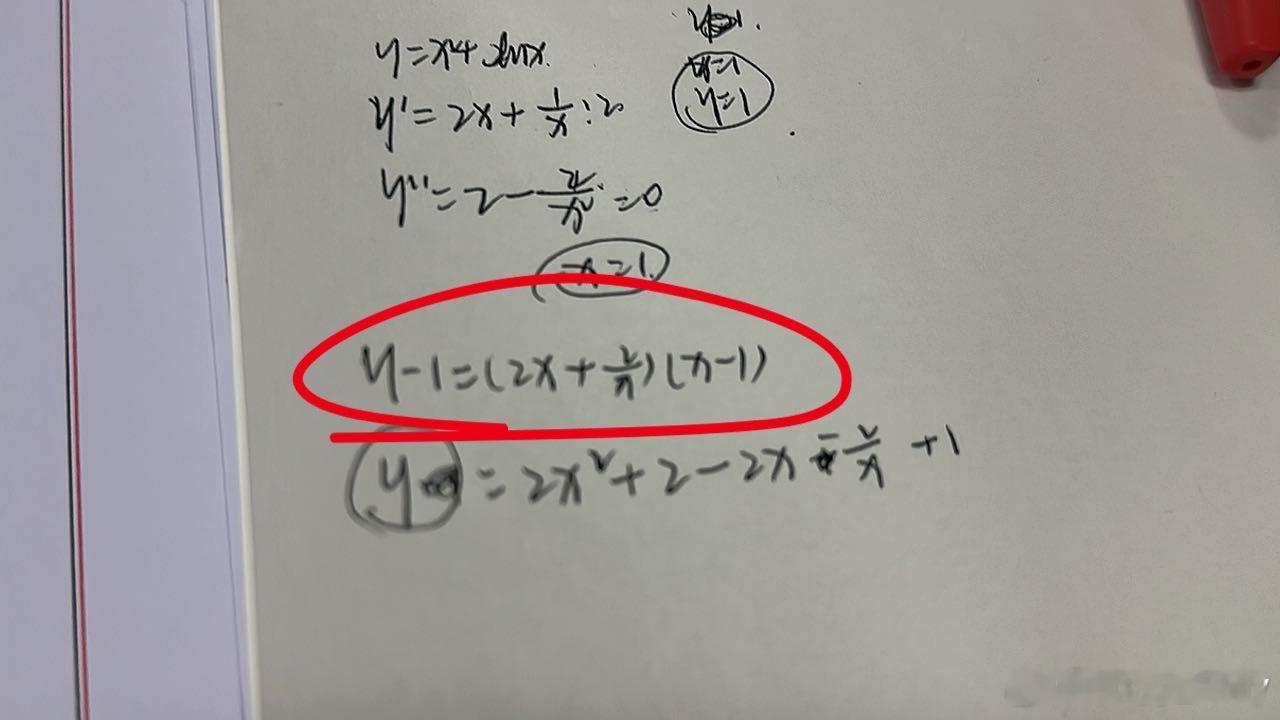 y=x²+2lnx.
y'=2x+1/x·2
y''=2-2/x²=0
x=1
x=1
y=1
y-1=(2x+2/x)(x-1)
y=2x²+2-2x-2/x+1